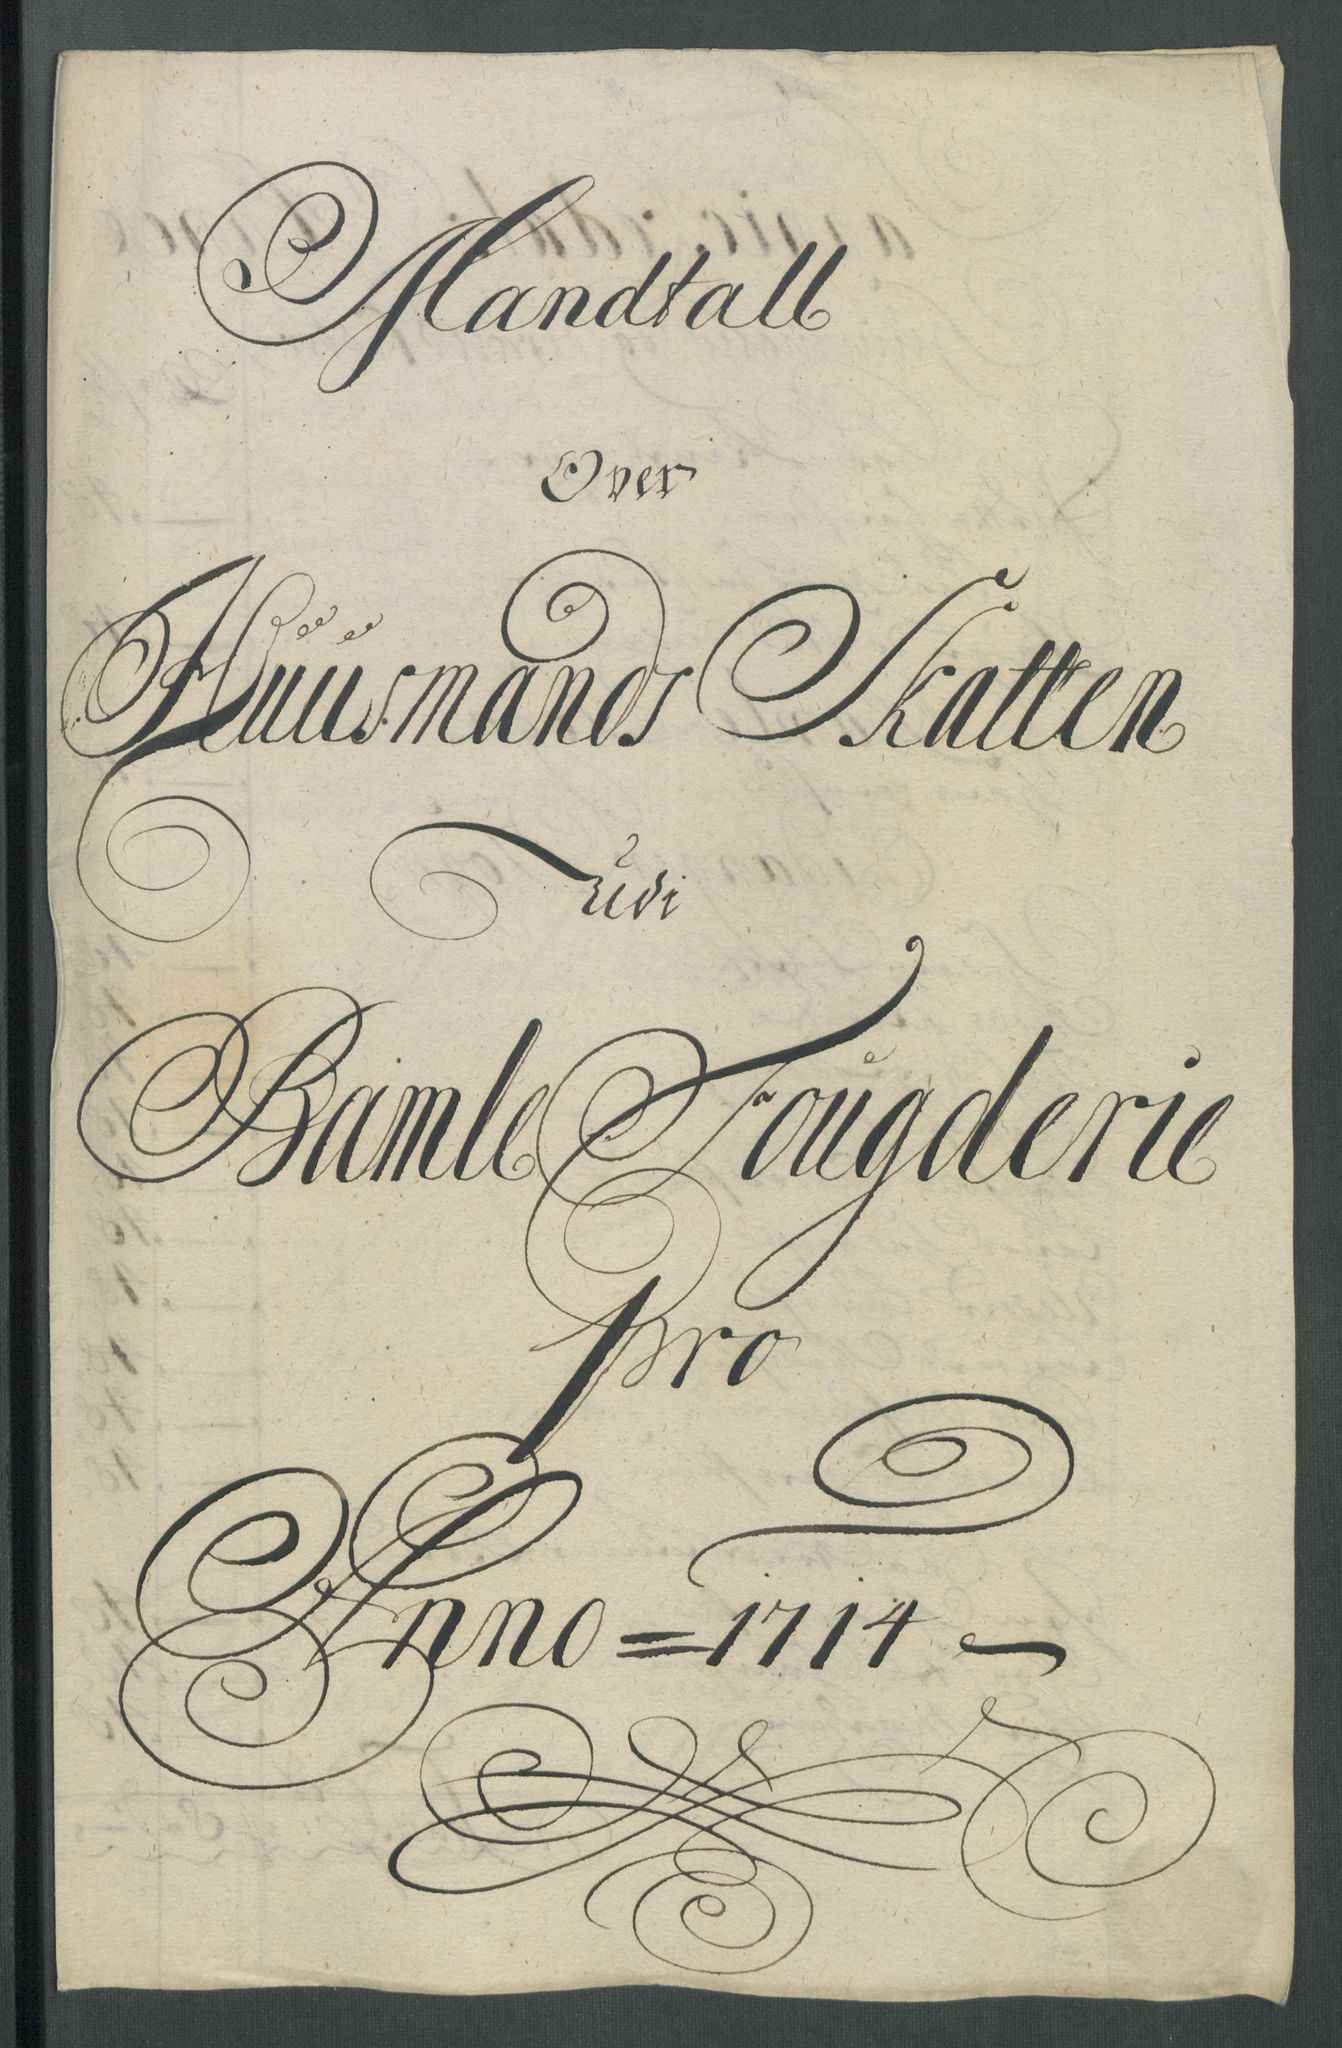 Mandtall
Over
Huusmands Skatten
udi
Bamle Fougderie
pro
Anno = 1714